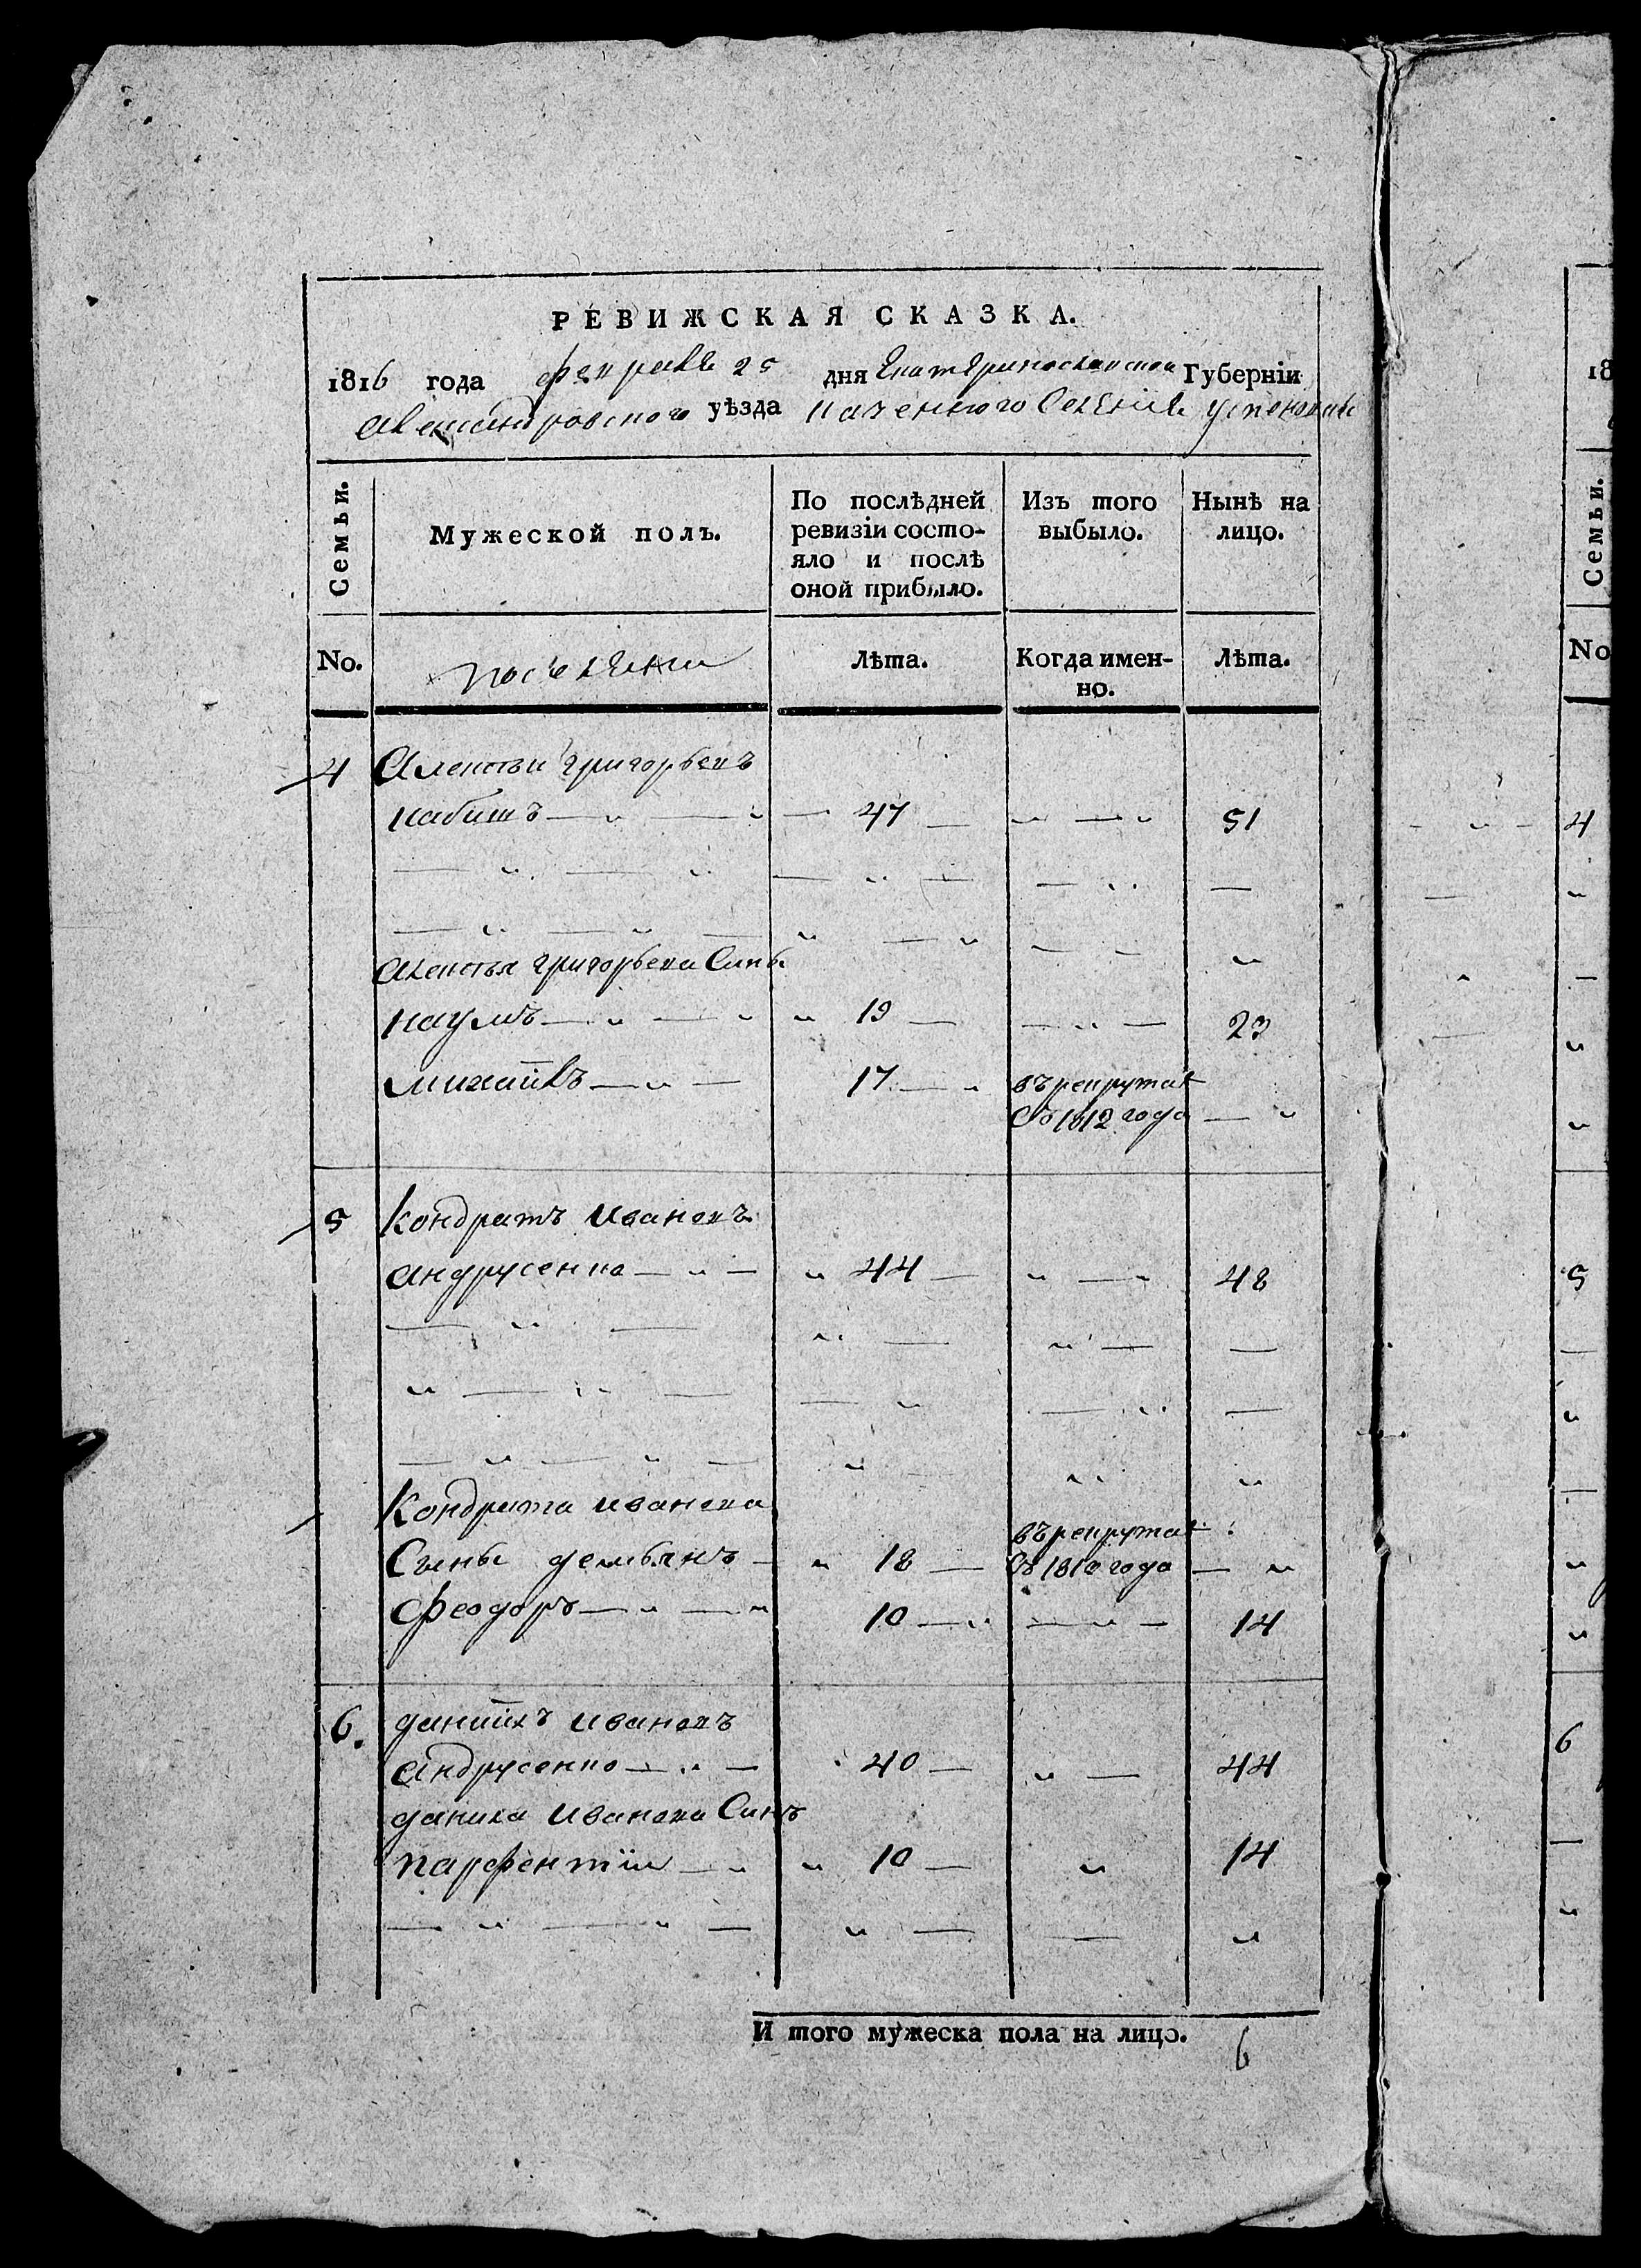 РЕВИЖСКАЯ СКАЗКА.
1816 года февраля 25 дня Екатеринославской Губерніи
Александровского уѣзда казенного Селенія Успеновки
Семьи. Мужеской полъ. По послѣдней ревизіи состояло и послѣ оной прибыло. Изъ того выбыло. Нынѣ на лицо.
No. поселяни Лѣта. Когда именно. Лѣта.
4 Алексѣи Григорьевъ
кабишъ 47 51
Алексѣя Григорьева Сины
наумъ 19 23
михайлъ 17 въ рекрутах
Съ 1812 года
5 Кондратъ Ивановъ
андрусенко 44 48
Кондрата Иванова
Сыны демьянъ 18 въ рекрутах
Съ 1812 года
Феодоръ 10 14
6. данийлъ Ивановъ
андрусенко 40 44
данила Иванова Синъ
парфентіи 10 14
И того мужеска пола на лицо. 6
18
Семьи.
No
4
5
6